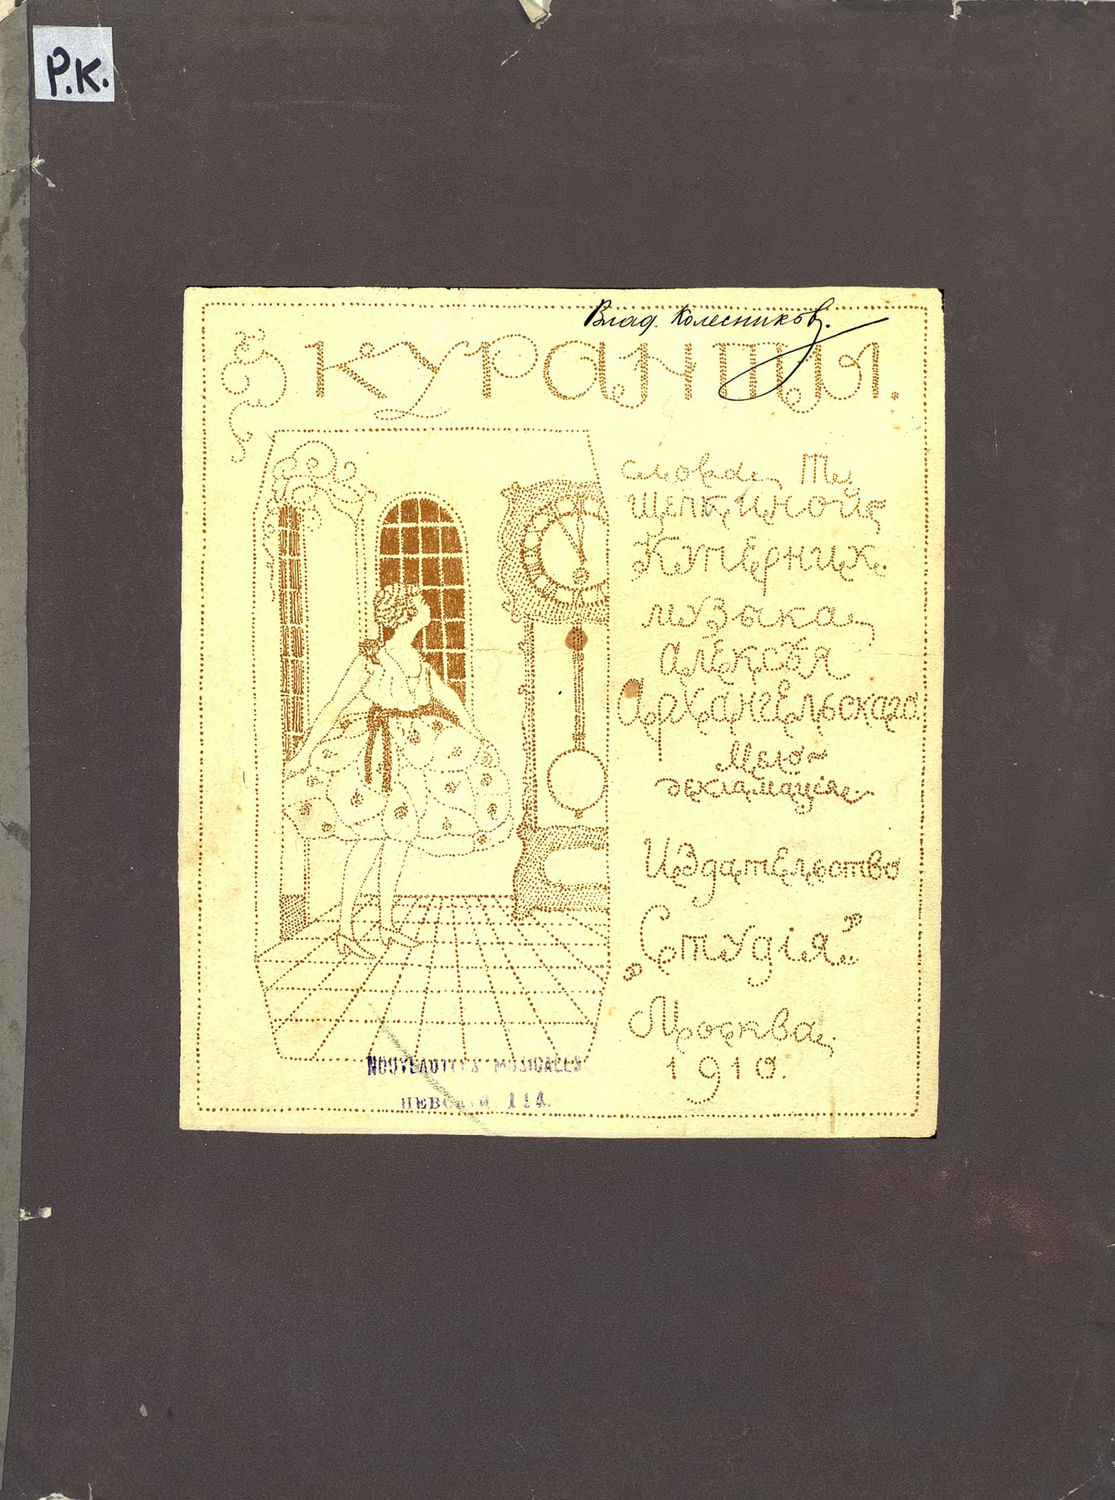 Р.К.
Влад. Колесниковъ.
КУРАНТЫ.
слова Т.
Щепкиной
Куперник.
музыка
Алексѣя
Архангельскаго.
Мело-
декламація.
Издательство
„Студія"
Москва.
1910.
NOUVEAUTÉS MUSICALES
НЕВСКІЙ 114.